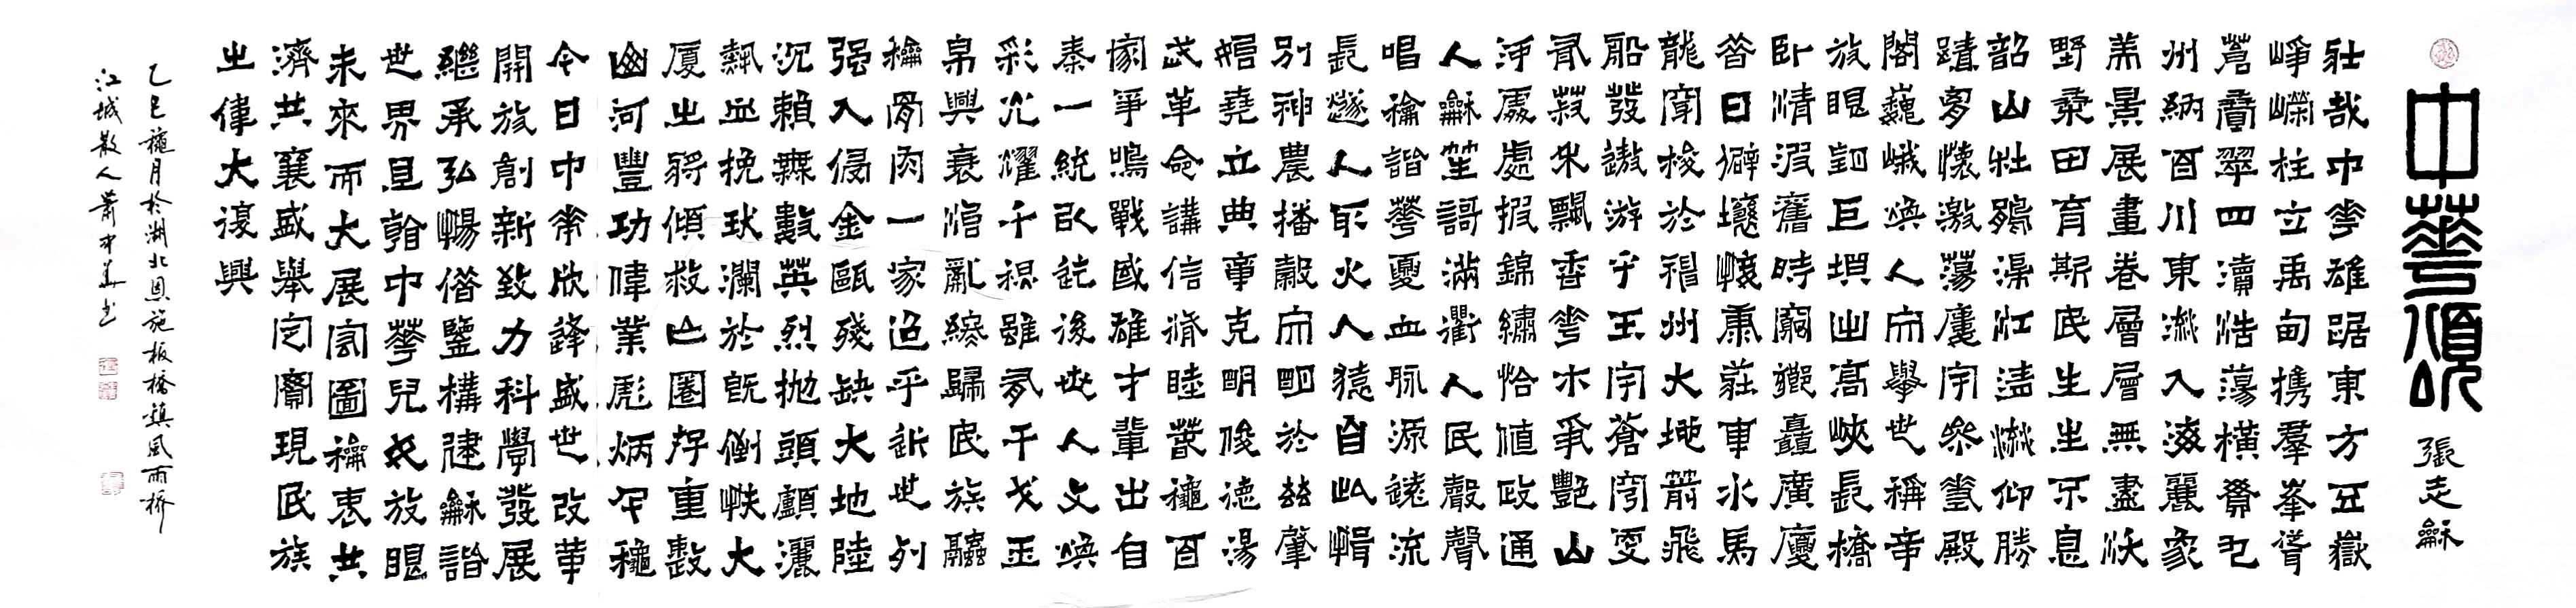 中華頌
張志龢
壯哉中華雄踞東方五嶽
崢嶸柱立禹甸携羣峯聳
蒼翠四瀆浩蕩橫貫九
州納百川東流入海麗象
美景展畫卷層層無盡沃
野桑田育斯民生生不息
韶山江仰勝
蹟多懷激蕩宇殿
閣巍峨煥人而舉世稱帝
放眼望巨垻出高峽長橋
臥清波舊時窮鄉矗廣廈
昔日僻壤懷康莊車水馬
龍梭於神州大地箭飛
船發遨游乎玉宇蒼穹至
菽米飄香花木爭艷山
河處處錦繡恰值政通
人龢笙謌滿衢人民聲聲
唱龢諧華夏血脉源遠流
長燧人取火人猿自此揖
別神農播穀而朙於茲肇
始堯立典章克朙俊德湯
武革命講信脩睦春穐百
家爭鳴戰國雄才輩出自
秦一統以迄後世人文煥
彩光耀千秋雖有干戈玉
帛興衰治亂終歸民族融
龢骨肉一家迨乎近世列
强入侵金甌殘缺大地陸
沉賴無數英烈拋頭顱灑
熱血挽狂瀾於既倒扶大
厦之將傾救亡圖存重整
山河豐功偉業彪炳千穐
今日中華欣逢盛世改革
開放創新致力科學發展
繼承弘暢借鑒構建龢諧
世界且中華兒女放眼
未來而大展宏圖龢衷共
濟共襄盛舉定現民族
之偉大復興
乙巳穐月於湖北恩施板橋鎮風雨橋
江城散人蕭中書